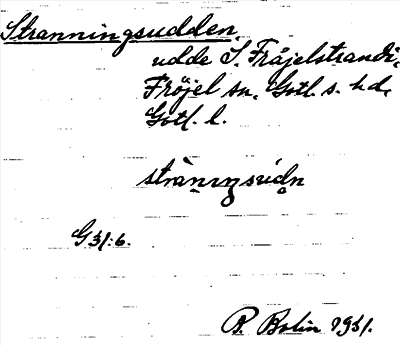 Stranningsudden,
udde S. Fröjelstrandi,
Fröjel sn, Gotl. s. hd,
Gotl. l.
strànıŋsúdn
G 31:6.
B. Bolin 1931.